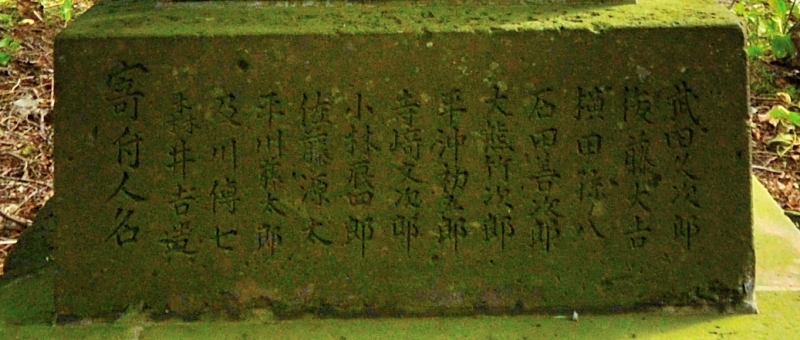 武田久次郎
後藤大吉
横田孫八
石田善次郎
大熊竹次郎
平沖初五郎
寺崎文次郎
小林辰四郎
佐藤源太
平川藤太郎
及川傳七
森井吉造
寄付人名